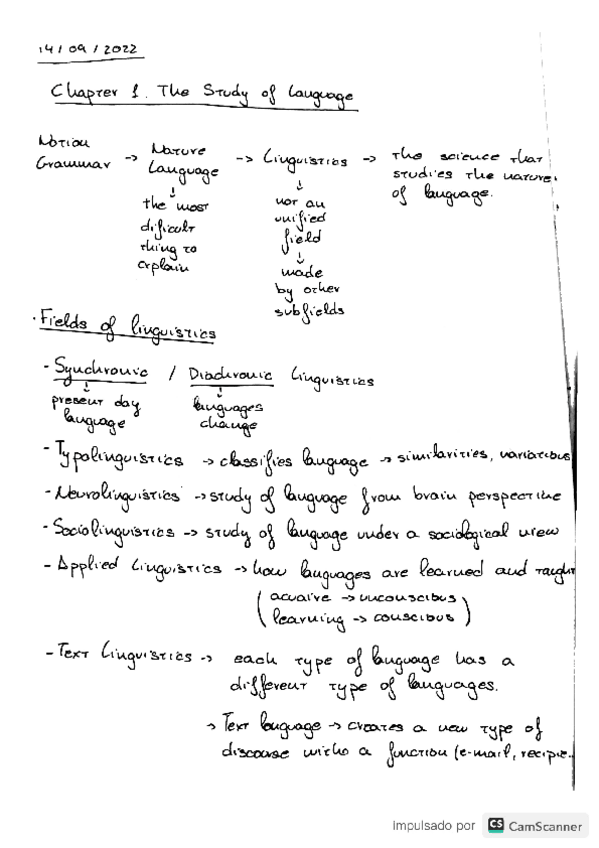 14/09/2022
Chapter 1. The Study of Language
Notion Grammar -> Nature Language -> Linguistics -> the science that studies the nature of language.
↓ the most dificult thing to explain
↓ not an unified field
↓ made by other subfields
· Fields of linguistics
- Synchronic / Diachronic Linguistics
↓ present day language
↓ languages change
- Typolinguistics -> classifies language -> similarities, variations
- Neurolinguistics -> study of language from brain perspective
- Sociolinguistics -> study of language under a sociological view
- Applied Linguistics -> how languages are learned and taught
(acuaire -> unconscious
learning -> conscious)
- Text Linguistics -> each type of language has a
different type of languages.
-> Text language -> creates a new type of
discourse with a function (e-mail, recipie.
Impulsado por CS CamScanner